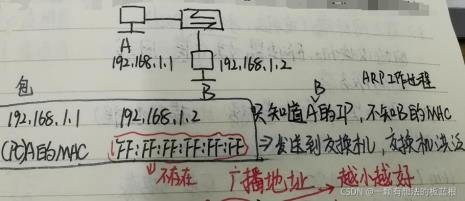 A
192.168.1.1
192.168.1.2
B
ARP工作过程
包
B
192.168.1.1 192.168.1.2 只知道A的IP,不知B的MAC
(PC)A的MAC FF:FF:FF:FF:FF:FF ⇒发送到交换机,交换机洪泛
不存在 广播地址 → 越小越好
CSDN @一颗有想法的板蓝根